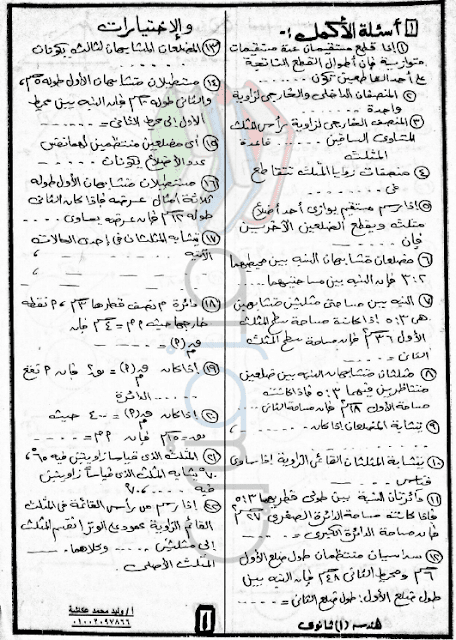 ١ أسئلة الأكمل :-
١) إذا قطع مستقيمان عدة مستقيمات
متوازية فإن أطوال القطع الناتجة
على أحد القاطعين تكون ......
٢) المنصفان الداخلى والخارجى لزاوية
واحدة ......
٣) المنصف الخارجى لزاوية رأس المثلث
المتساوى الساقين ...... قاعدة
المثلث
٤) منصفات زوايا المثلث تتقاطع
فى ......
٥) إذا رسم مستقيم يوازى أحد أضلاع
مثلث ويقطع الضلعين الآخرين
فإن ......
٦) مضلعان متشابهان النسبه بين محيطيهما
٣:٢ فإن النسبه بين مساحتيهما...
٧) النسبه بين مساحتى مثلثين متشابهين
هى ٣:٥ إذا كانت مساحة سطح المثلث
الأول ٣٦ سم٢ فإن مساحة سطح المثلث
الثانى = ....
٨) مثلثان متشابهان النسبه بين ضلعين
متناظرين فيهما ٣:٥ فإذا كانت
مساحة الأول ١٨ سم٢ فإن مساحة الثانى ...
٩) تشابة المضلعان إذا كان......
١٠) يتشابة المثلثان القائمى الزاوية إذا ساوى
قياس ......
١١) دائرتان النسبه بين طولى قطريهما ٣:٥
فإذا كانت مساحة الدائرة الصغرى ٢٧ سم٢
فإن مساحة الدائرة الكبرى = ...
١٢) سداسيان منتظمان طول ضلع الأول
٦ سم ومحيط الثانى ٤٨ سم فإن النسبه بين
طول ضلع الأول : طول ضلع الثانى = ....
والإختيارات
١٣) المضلعان المتشابهان لثالث يكونان
......
١٤) مستطيلان متشابهان الأول طوله ٥ سم
والثانى طوله سم فإن النسبه بين محيط
الأول إلى محيط الثانى = ......
١٥) أى مضلعين منتظمين لهما نفس
عدد الأضلاع يكونان ......
١٦) مستطيلان متشابهان الأول طوله
ثلاثة أمثال عرضه فإذا كان الثانى
طوله ١٢ سم فإن عرضه يساوى ....
١٧) تشابه المثلثان فى إحدى الحالات
الآتيه ......
١٨) دائرة م نصف قطرها ٣ سم ، ٩ نقطة
خارجها حيث ٩م = ٤ سم فإن
= ......
١٩) إذا كان = صفر فإن ٩ تقع
...... الدائرة
٢٠) إذا كان = ٤٠٠ حيث
نق = ١٥ سم فإن ٩م = ....
٢١) المثلث الذى قياسا زاويتين فيه ٦٥°،
٧٠° يشابه المثلث الذى قياسا زاويتين
فيه ....، ٧٠°
٢٢) إذا رسم من رأس القائمة فى المثلث
القائم الزاوية عمودى الوتر انقسم المثلث
إلى مثلثين .... وكلاهما....
المثلث الأصلى
هندسه (١) ثانوى
١
أ/ وليد محمد عكاشة